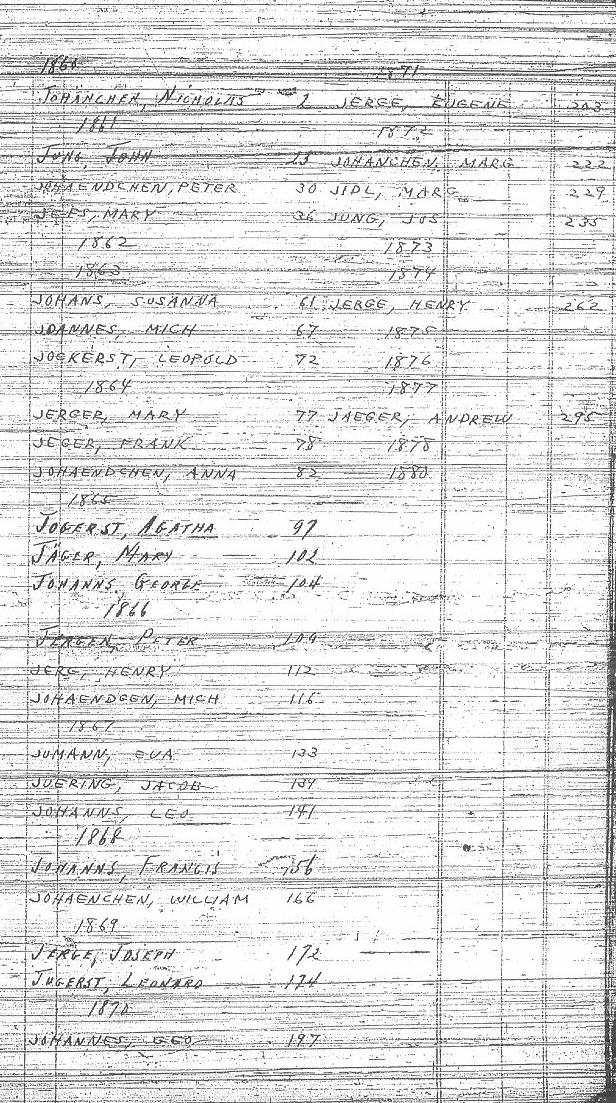 1860
JOHÄNCHEN, NICHOLAS 2
1861
JUNG, JOHN 23
JOHAENDCHEN, PETER 30
JEFS, MARY 36
1862
1863
JOHANS, SUSANNA 61
JOANNES, MICH 67
JOCKERST, LEOPOLD 72
1864
JERGER, MARY 77
JEGER, FRANK 78
JOHAENDCHEN, ANNA 82
1865
JOGERST, AGATHA 97
JÄGER, MARY 102
JOHANNS, GEORGE 104
1866
JERGEN, PETER 109
JERG, HENRY 112
JOHAENDGEN, MICH 116
1867
JUMANN, EVA 133
JUERING, JACOB 134
JOHANNS, LEO 141
1868
JOHANNS, FRANCIS 156
JOHAENCHEN, WILLIAM 166
1869
JERGE, JOSEPH 172
JUGERST, LEONARD 174
1870
JOHANNES, GEO 197
1871
JERGE, EUGENE 203
1872
JOHANCHEN, MARG 222
JIDL, MARG 229
JUNG, JOS 235
1873
1874
JERGE, HENRY 262
1875
1876
1877
JAEGER, ANDREW 295
1878
1880